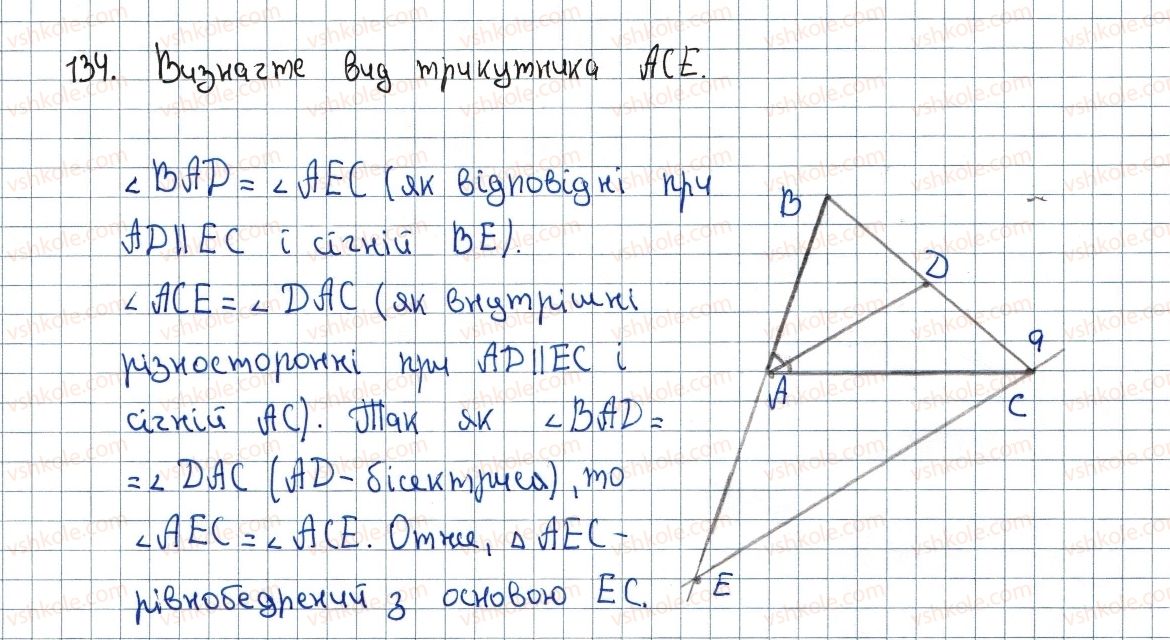 134. Визначте вид трикутника ACE.
∠BAD = ∠AEC (як відповідні при
AD∥EC і січній BE).
∠ACE = ∠DAC (як внутрішні
різносторонні при AD∥EC і
січній AC). Так як ∠BAD =
= ∠DAC (AD - бісектриса), то
∠AEC = ∠ACE. Отже, △AEC -
рівнобедрений з основою EC.
B
D
a
A
C
E
vshkole.com